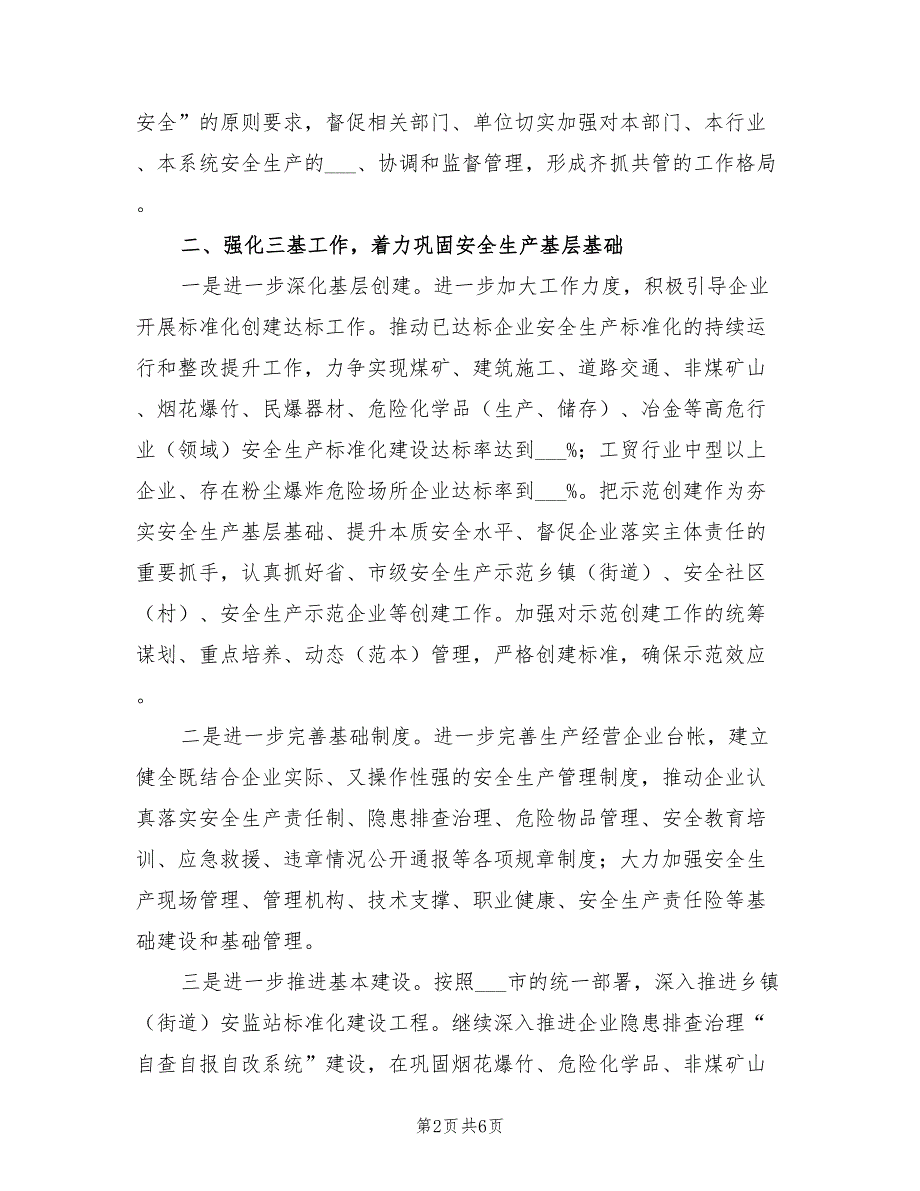 安全”的原则要求，督促相关部门、单位切实加强对本部门、本行业
、本系统安全生产的___、协调和监督管理，形成齐抓共管的工作格局
。
二、强化三基工作，着力巩固安全生产基层基础
一是进一步深化基层创建。进一步加大工作力度，积极引导企业
开展标准化创建达标工作。推动已达标企业安全生产标准化的持续运
行和整改提升工作，力争实现煤矿、建筑施工、道路交通、非煤矿山
、烟花爆竹、民爆器材、危险化学品（生产、储存）、冶金等高危行
业（领域）安全生产标准化建设达标率达到___%；工贸行业中型以上
企业、存在粉尘爆炸危险场所企业达标率到___%。把示范创建作为夯
实安全生产基层基础、提升本质安全水平、督促企业落实主体责任的
重要抓手，认真抓好省、市级安全生产示范乡镇（街道）、安全社区
（村）、安全生产示范企业等创建工作。加强对示范创建工作的统筹
谋划、重点培养、动态（范本）管理，严格创建标准，确保示范效应
。
二是进一步完善基础制度。进一步完善生产经营企业台帐，建立
健全既结合企业实际、又操作性强的安全生产管理制度，推动企业认
真落实安全生产责任制、隐患排查治理、危险物品管理、安全教育培
训、应急救援、违章情况公开通报等各项规章制度；大力加强安全生
产现场管理、管理机构、技术支撑、职业健康、安全生产责任险等基
础建设和基础管理。
三是进一步推进基本建设。按照___市的统一部署，深入推进乡镇
（街道）安监站标准化建设工程。继续深入推进企业隐患排查治理“
自查自报自改系统”建设，在巩固烟花爆竹、危险化学品、非煤矿山
第2页 共6页